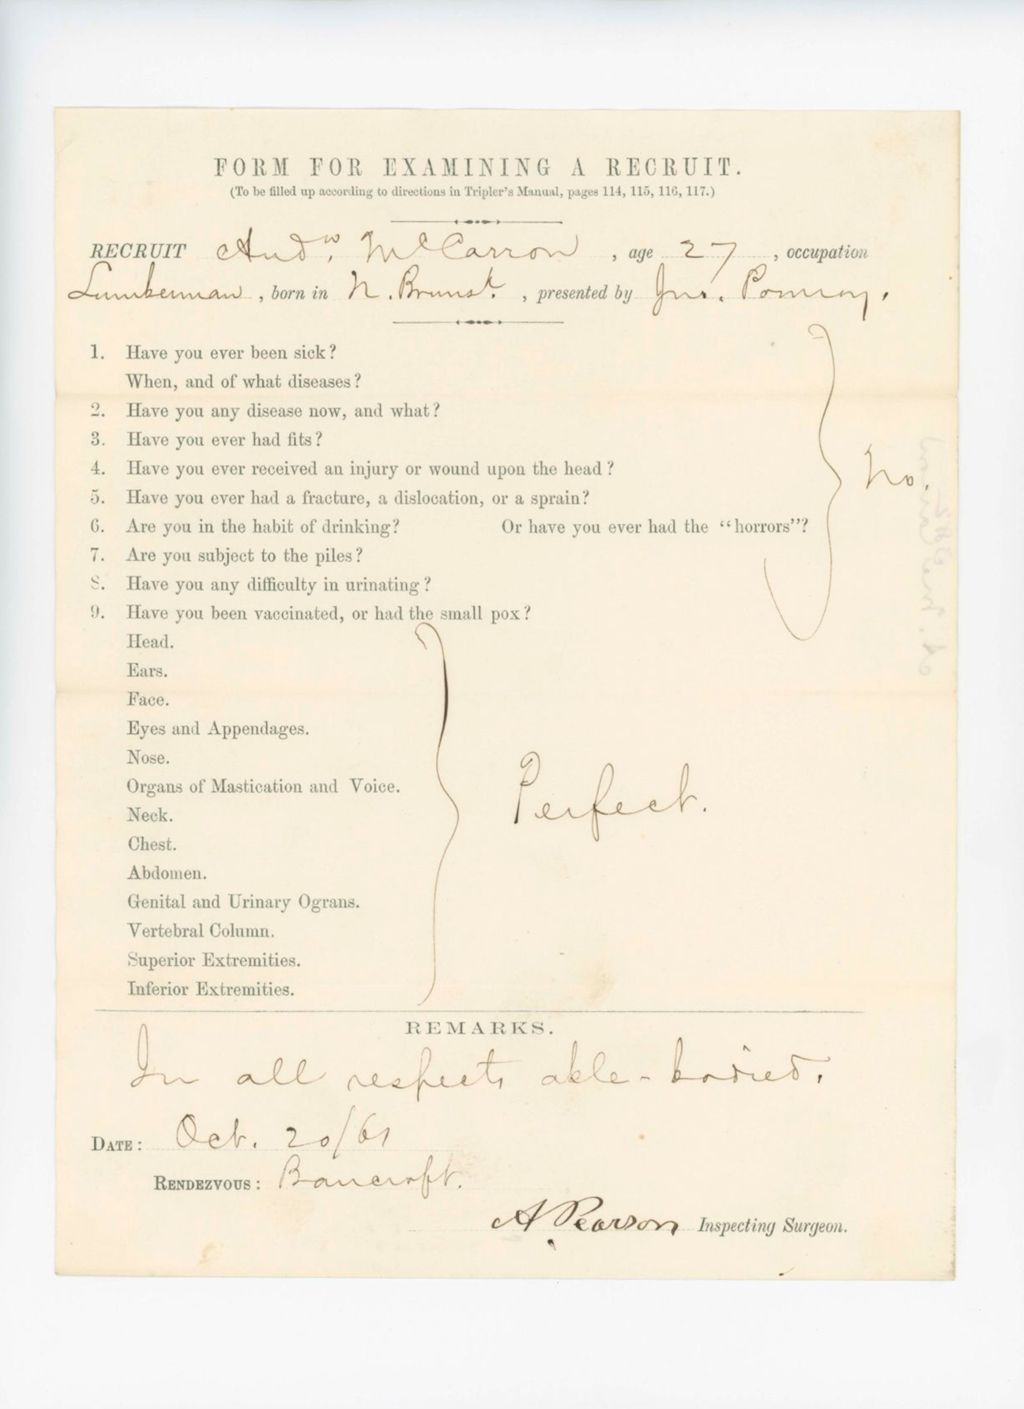 FORM FOR EXAMINING A RECRUIT.
(To be filled up according to directions in Tripler's Manual, pages 114, 115, 116, 117.)
RECRUIT Andw. McCarron, age 27, occupation
Lumberman, born in N. Brunsk., presented by Jns. Pomroy.
1. Have you ever been sick?
When, and of what diseases?
2. Have you any disease now, and what?
3. Have you ever had fits?
4. Have you ever received an injury or wound upon the head?
No.
5. Have you ever had a fracture, a dislocation, or a sprain?
6. Are you in the habit of drinking? Or have you ever had the "horrors"?
7. Are you subject to the piles?
8. Have you any difficulty in urinating?
9. Have you been vaccinated, or had the small pox?
Head.
Ears.
Face.
Eyes and Appendages.
Nose.
Organs of Mastication and Voice.
Perfect.
Neck.
Chest.
Abdomen.
Genital and Urinary Ograns.
Vertebral Column.
Superior Extremities.
Inferior Extremities.
REMARKS.
In all respects able-bodied.
DATE: Oct. 20/61
RENDEZVOUS: Bancroft.
A Pearson Inspecting Surgeon.